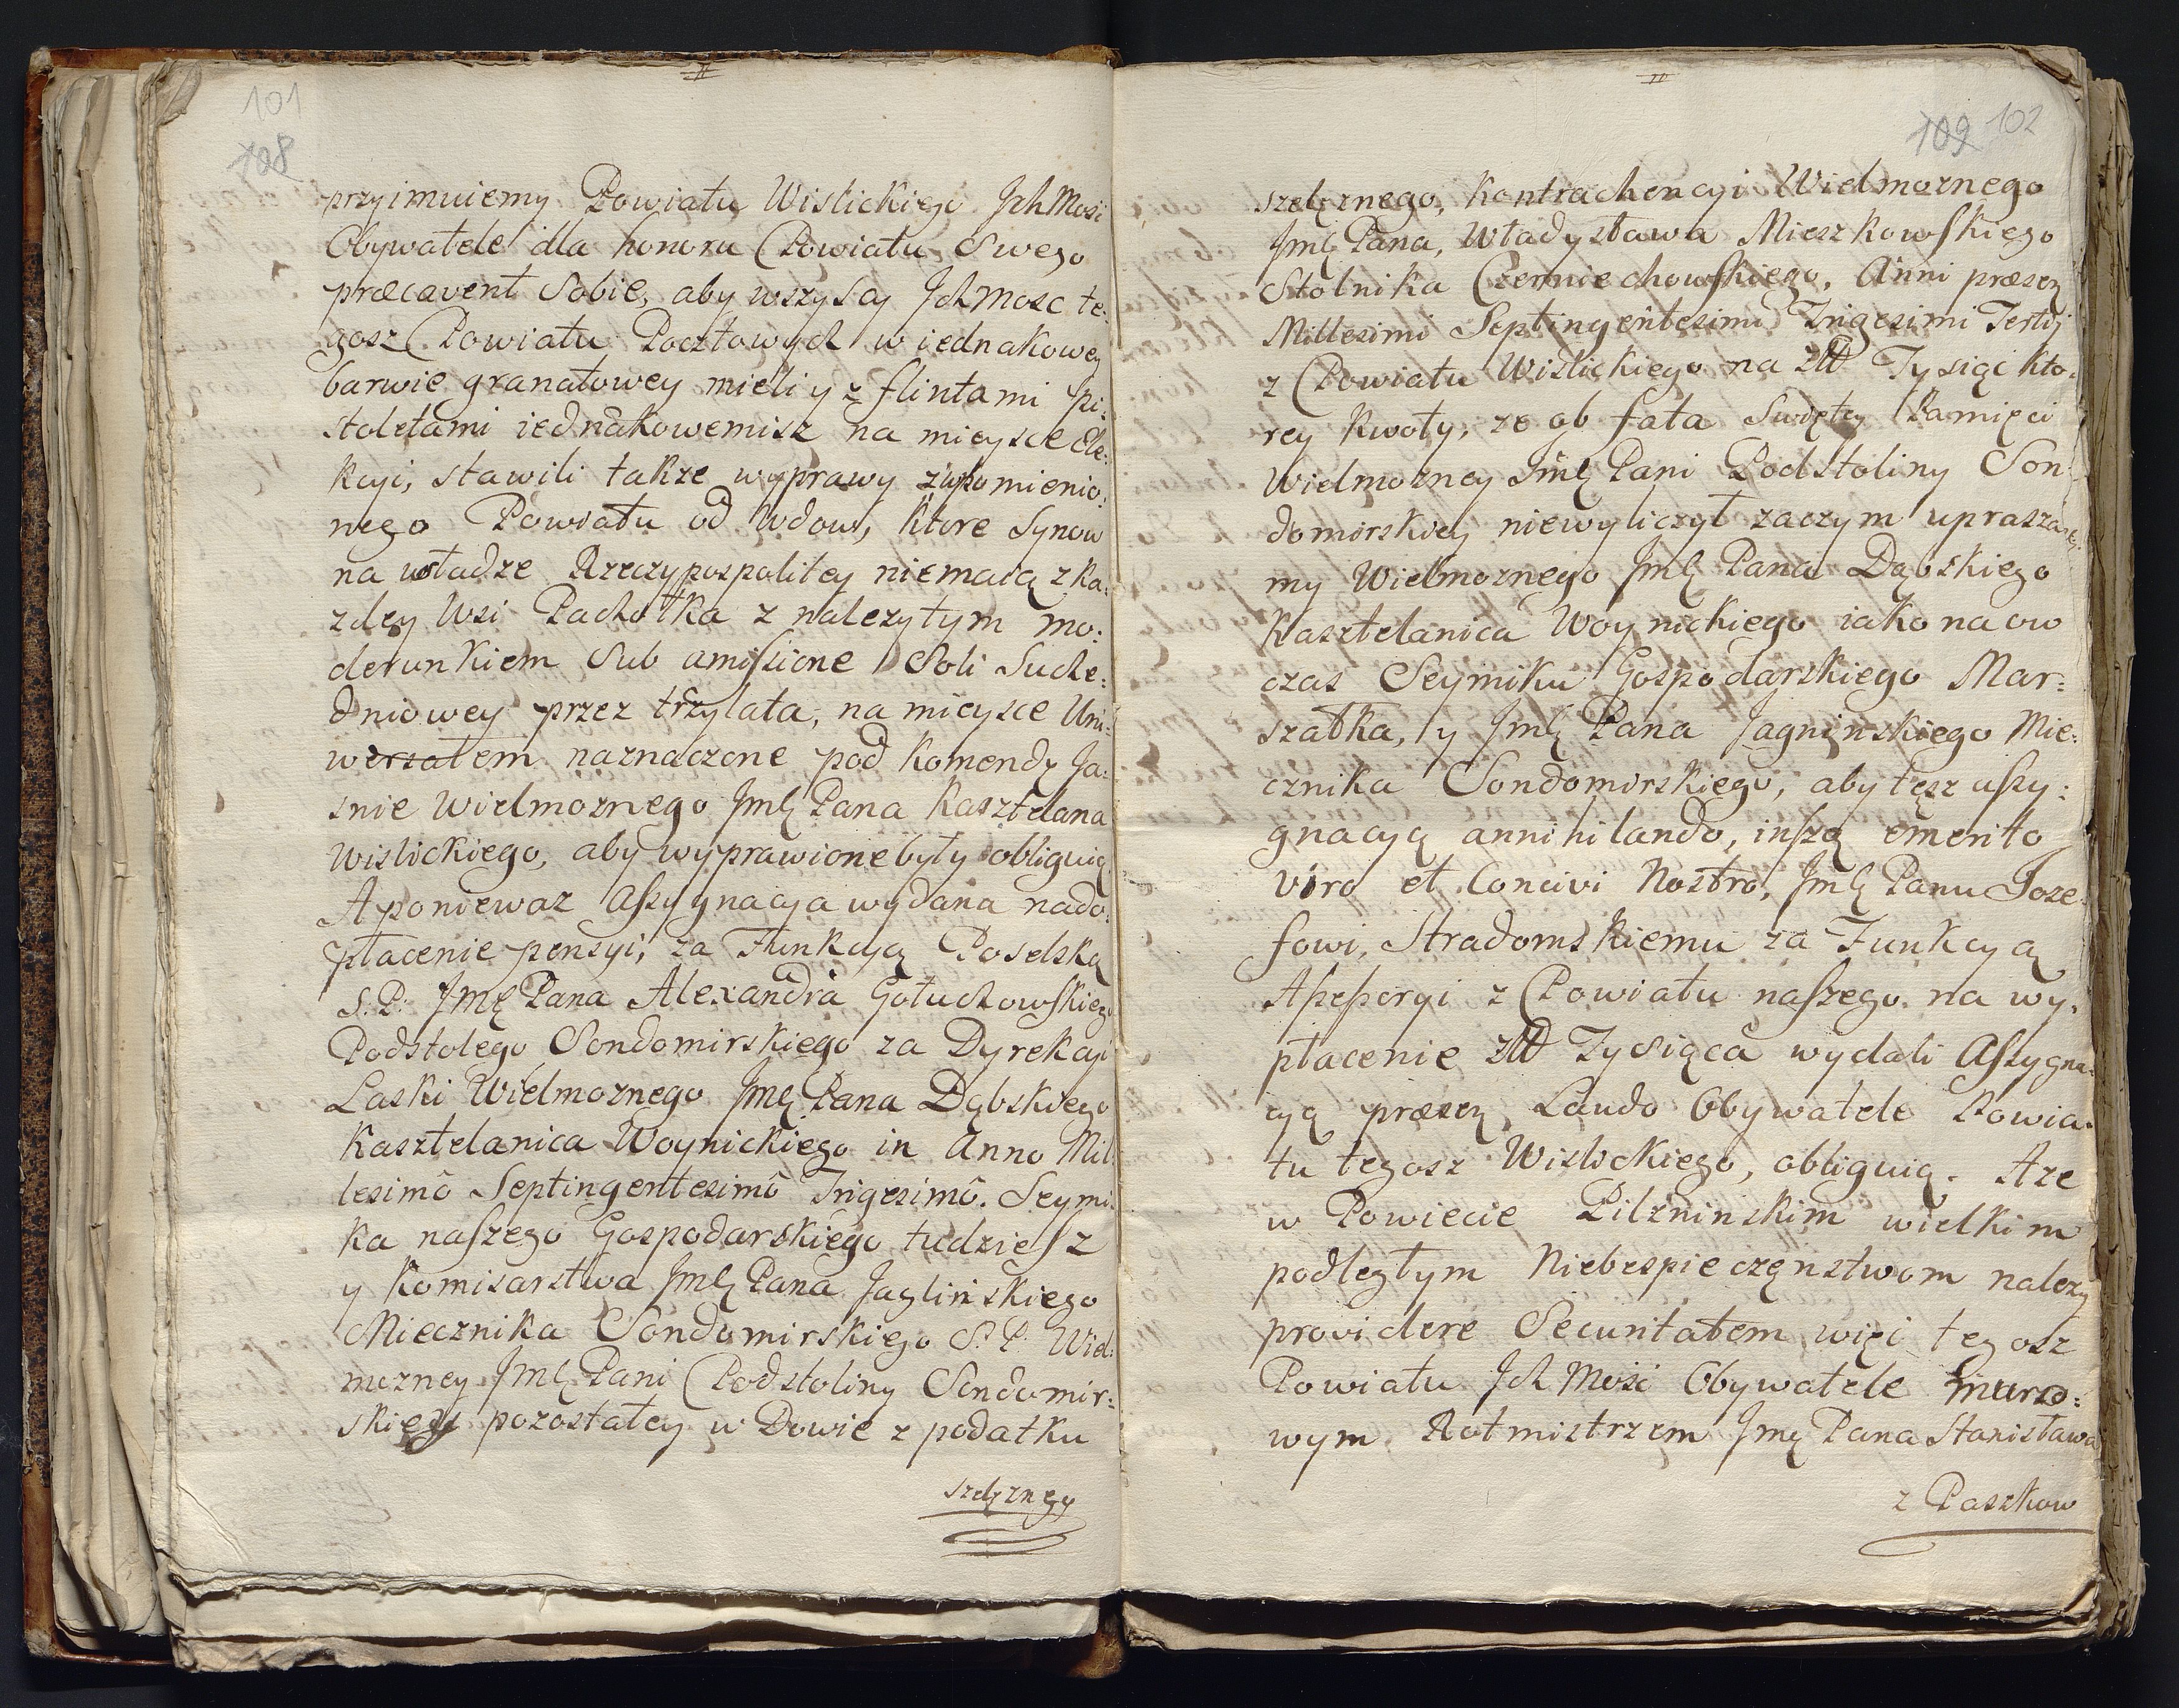 101
108
przyimuiemy Powiatu Wislickiego JchMosć
Obywatele dla honoru Powiatu Swego
præcavent Sobie, aby wszyscy JchMosc te:
gosz Powiatu Pocztowych w iednakowey
barwie granatowey mieli y z flintami pi:
stoletami iednakowemisz na mieysce Ele:
kcyi, stawili takze wyprawy zwspomienio:
nego Powiatu od Wdow, ktore Synow
na usładze Rzeczypospolitey niemaią z ka:
zdey Wsi Pachołka z nalezytym mo:
derunkiem Sub amissione Soli Suche:
dniowey przez trzylata, na mieysce Uni:
wersałem naznaczone pod Komendę Ja:
snie Wielmoznego Jmę Pana Kasztelana
Wislickiego, aby wyprawione były obliguią
A poniewaz Assygnacya wydana nado:
płacenie pensyi, za Funkcyą Poselską
S. P. Jmę Pana Alexandra Gołuchowskiego
Podstolego Sondomirskiego za Dyrekcyi
Laski Wielmoznego Jmę Pana Dąbskiego
Kasztelanica Woynickiego in Anno Mil:
lesimô Septingentesimô Trigesimô. Seymi:
ka naszego Gospodarskiego tudziesz
y Komisarstwa Jmę Pana Jaglińskiego
Miecznika Sondomirskiego S. P. Wiel:
mozney Jmę Pani Podstoliny Sondomir:
skiey pozostałey w Dowie z podatku
szelęznego
109 102
szelęznego, Kontrachencyi Wielmoznego
Jmę Pana, Władysława Mieszkowskiego
Stolnika Czerniechowskiego, Anni præsen
Millesimi Septingentesimi Trigesimi Tertij
z Powiatu Wislickiego na zł Tysiąc kto:
rey Kwoty, ze ob fata Swiętey Pamięci
Wielmozney Jmę Pani Podstoliny Son:
domirskiey niewyliczył zaczym uprasza:
my Wielmoznego Jmę Pana Dąbskiego
Kasztelanica Woynickiego iako na ow
czas Seymiku Gospodarskiego Mar:
szałka, y Jmę Pana Jagninskiego Mie:
cznika Sondomirskiego, aby tęsz assy:
gnacyą annihilando, inszą emerito
viro et Concivi Nostro, Jmę Panu Joze:
fowi, Stradomskiemu za Funkcyą
Assessoryi z Powiatu naszego na wy:
płacenie zł Tysiąca wydali Assygna:
cyą præsen Laudo Obywatele Powia:
tu tegosz Wislickiego, obliguią. A ze
w Powiecie Pilzninskim wielkim
podległym Niebespieczęnstwom nalezy
providere Securitatem, więc tegosz
Powiatu Jch Mość Obywatele
wym Rotmistrzem Jmę Pana Stanisława
z Paszkow